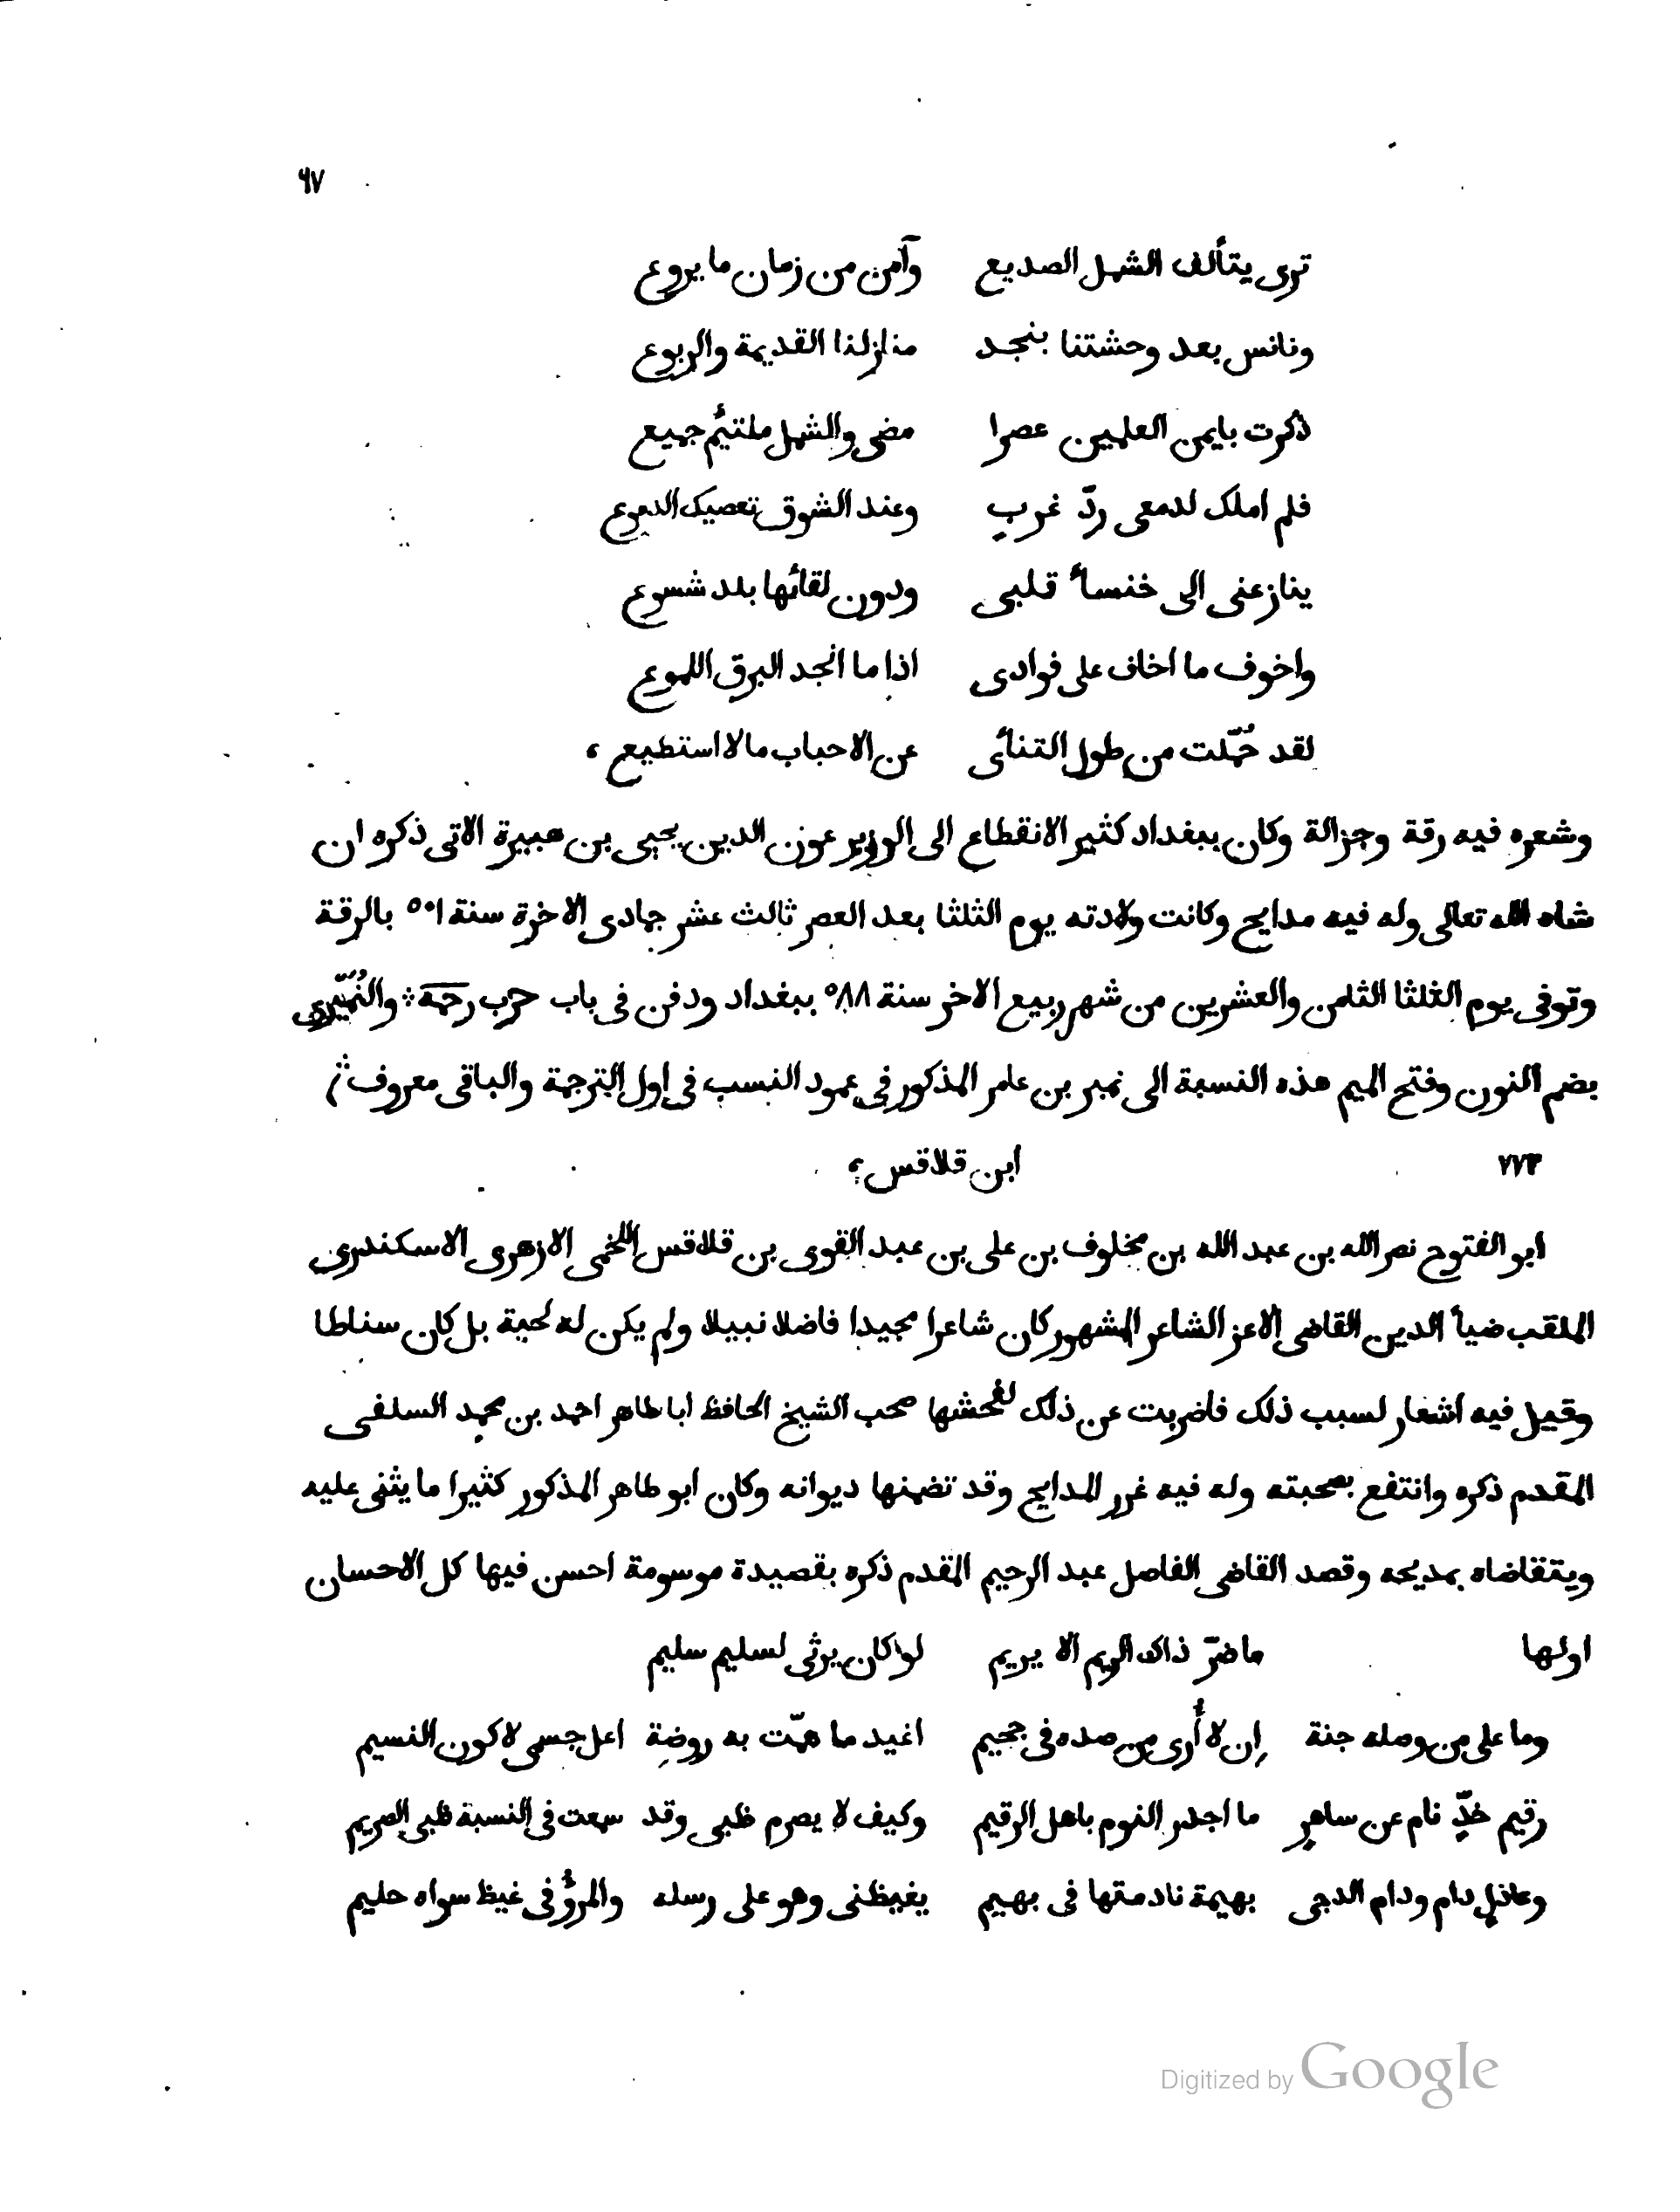 ٩٧
ترى يتألف الشمل الصديع وآمن من زمان ما يروع
ونانس بعد وحشتنا بنجد منازلنا القديمة والربوع
ذكرت بايمن العلمين عصرا مضى والشمل ملتيُم جميع
فلم املك لدمعى ردّ غرب وعند الشوق تعصيك الدموع
ينازعنى الى خنسأ قلبى ودون لقائها بلد شسوع
واخوف ما اخاف على فوادى اذا ما انجد البرق اللموع
لقد حُمّلت من طول التنأى عن الاحباب مالا استطيع ،
وشعره فيه رقة وجزالة وكان ببغداد كثير الانقطاع الى الوزير عون الدين يحيى بن هبيرة الاتى ذكره ان
شاه الله تعالى وله فيه مدايح وكانت ولادته يوم الثلثا بعد العصر ثالث عشر جمادى الاخرة سنة ٥٠١ بالرقة
وتوفى يوم الثلثا الثامن والعشرين من شهر ربيع الاخر سنة ٥٨٨ ببغداد ودفن فى باب حرب رحمه ؞ والنُمَيْرى
بضم النون وفتح الميم هذه النسبة الى نمير بن عامر المذكور فى عمود النسب فى اول الترجمة والباقى معروف ؞
٧٧٣ ابن قلاقس ؛
ابو الفتوح نصر الله بن عبد الله بن مخلوف بن على بن عبد القوى بن قلاقس اللخمى الازهرى الاسكندرى
الملقب ضيأ الدين القاضى الاعز الشاعر المشهور كان شاعرا مجيدا فاضلا نبيلا ولم يكن له لحية بل كان سناطا
وقيل فيه اشعار لسبب ذلك فاضربت عن ذلك لفحشها صحب الشيخ الحافظ ابا طاهر احمد بن محمد السلفى
المقدم ذكره وانتفع بصحبته وله فيه غرر المدايح وقد تضمنها ديوانه وكان ابو طاهر المذكور كثيرا ما يثنى عليه
ويتقاضاه بمديحه وقصد القاضى الفاصل عبد الرحيم المقدم ذكره بقصيدة موسومة احسن فيها كل الاحسان
اولها ماضرّ ذاك الريم الا يريم لو كان يرثى لسليم سليم
وما على من وصله جنة إن لا أُرى من صده فى جحيم اغيد ما همّت به روضة اعل جسمى لاكون النسيم
رقيم خدٍّ نام عن ساهرٍ ما اجدر النوم باهل الرقيم وكيف لا يصرم ظبى وقد سمعت فى النسبة ظبى الصريم
وعاذلٍ دام ودام الدجى بهيمة نادمتها فى بهيم يغيظنى وهو على رسله والمرؤُ فى غيظ سواه حليم
Digitized by Google